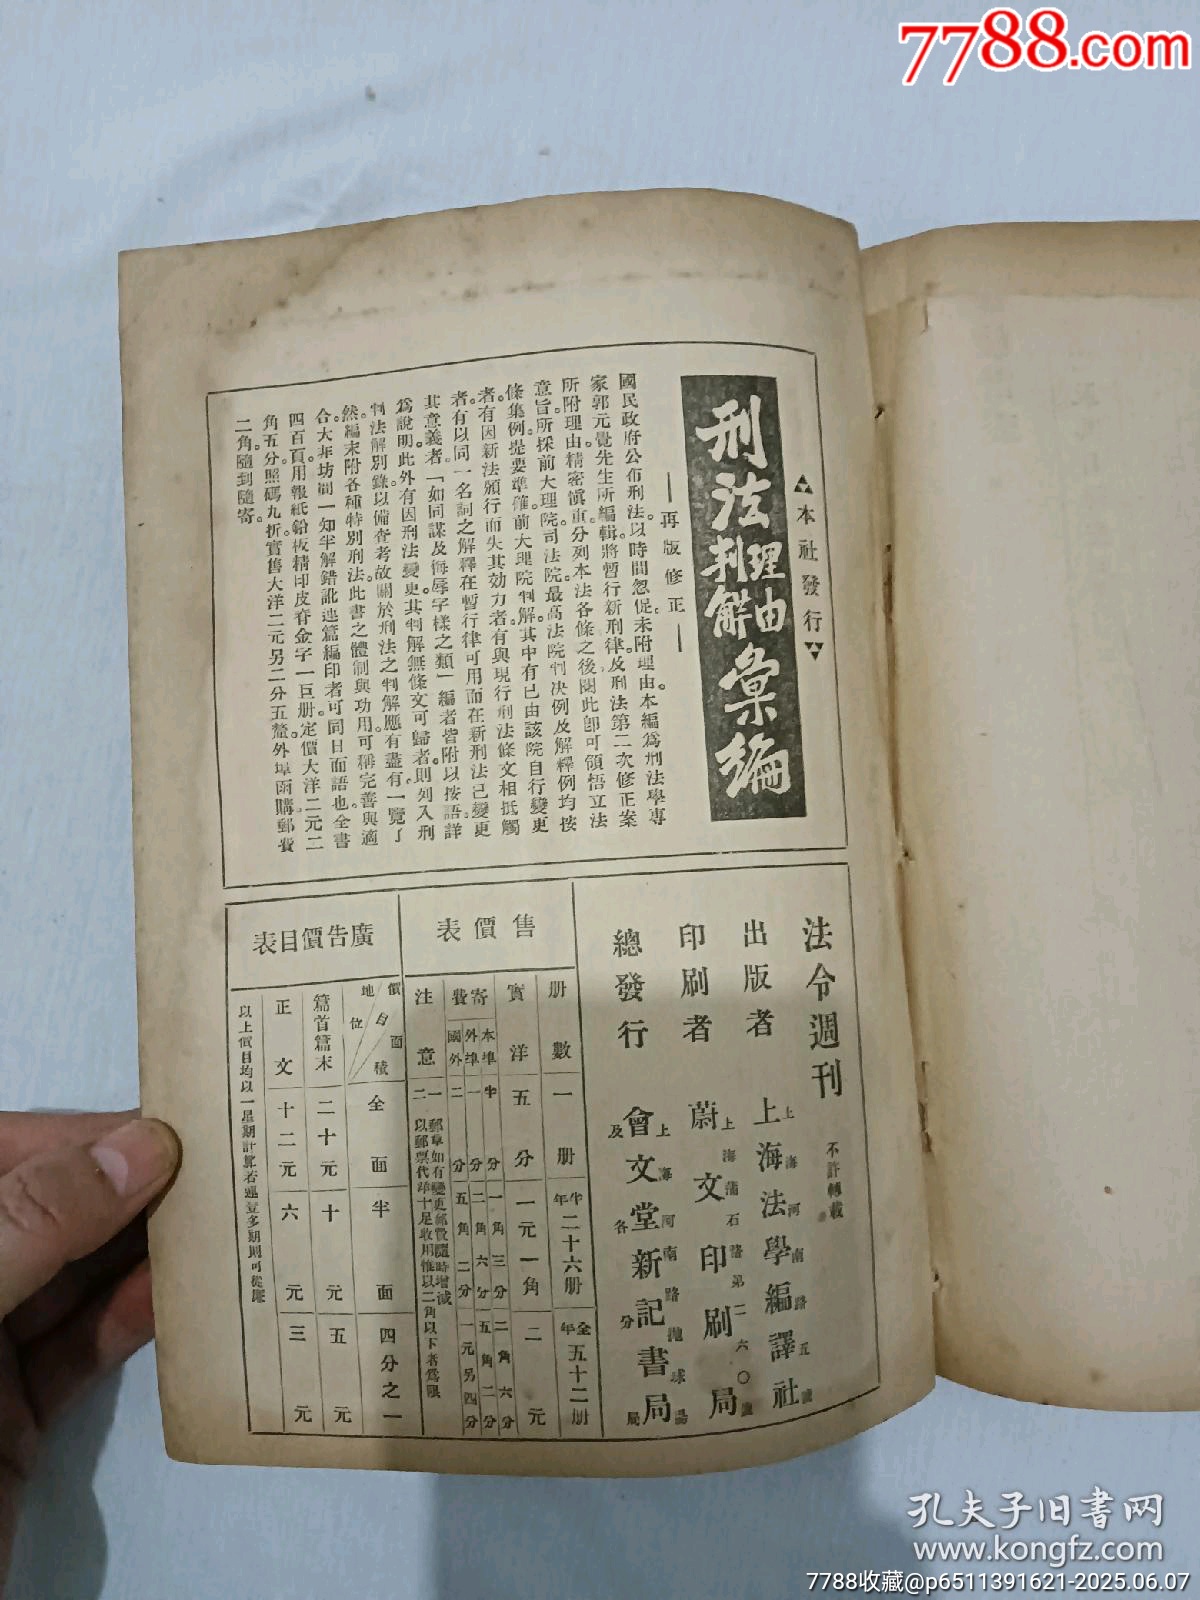 7788.com
本社發行
刑法理由判解彙編
再版修正
國民政府公布刑法以時間忽促未附理由。本編為刑法學專
家郭元覺先生所編輯。將暫行新刑律及刑法第二次修正案
所附理由精密慎重分列本法各條之後閱此即可領悟立法
意旨所採前大理院司法院最高法院判決例及解釋例均按
條集例提要準確前大理院判解其中有已由該院自行變更
者。有因新法頒行而失其效力者。有與現行刑法條文相抵觸
者。有以同一名詞之解釋在暫行律可用而在新刑法已變更
其意義者。「如同謀及侮辱字樣之類」編者皆附以按語詳
為說明此外有因刑法變更其判解無條文可歸者則列入刑
判法解別錄以備查考故關於刑法之判解應有盡有一覽了
然。編末附各種特別刑法。此書之體制與功用可稱完善與適
合。大非坊間一知半解錯訛連篇編印者可同日而語也。全書
四百頁用報紙鉛板精印皮脊金字一巨册定價大洋二元二
角五分照碼九折實售大洋二元另二分五釐外埠函購郵費
二角。隨到隨寄。
法令週刊 不許轉載
出版者 上海河南路五號 上海法學編譯社
印刷者 上海蒲石路第二六〇號 蔚文印刷局
總發行 上海河南路拋球場 會文堂新記書局 及各分局
售價表
册數 一册 半年二十六册 全年五十二册
實洋 五分 一元一角 二元
寄費 本埠 半分 一角三分 二角六分
外埠 一分 二角六分 五角二分
國外 二分 五角二分 一元另四分
注意 一 郵章如有變更郵費隨時增減
二 以郵票代洋十足收用惟以二角以下者為限
廣告價目表
價目 面積 地位 全面 半面 四分之一
篇首篇末 二十元 十元 五元
正文 十二元 六元 三元
以上價目均以一星期計算若連登多期則可從廉
孔夫子旧书网
www.kongfz.com
7788收藏@p6511391621-2025.06.07